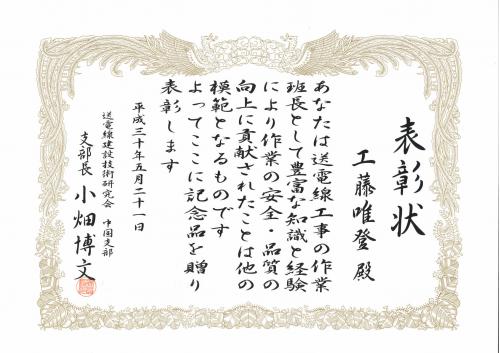 表彰状
工藤唯登 殿
あなたは送電線工事の作業
班長として豊富な知識と経験
により作業の安全・品質の
向上に貢献されたことは他の
模範となるものです
よってここに記念品を贈り
表彰します
平成三十年五月二十一日
送電線建設技術研究会 中国支部
支部長 小畑博文